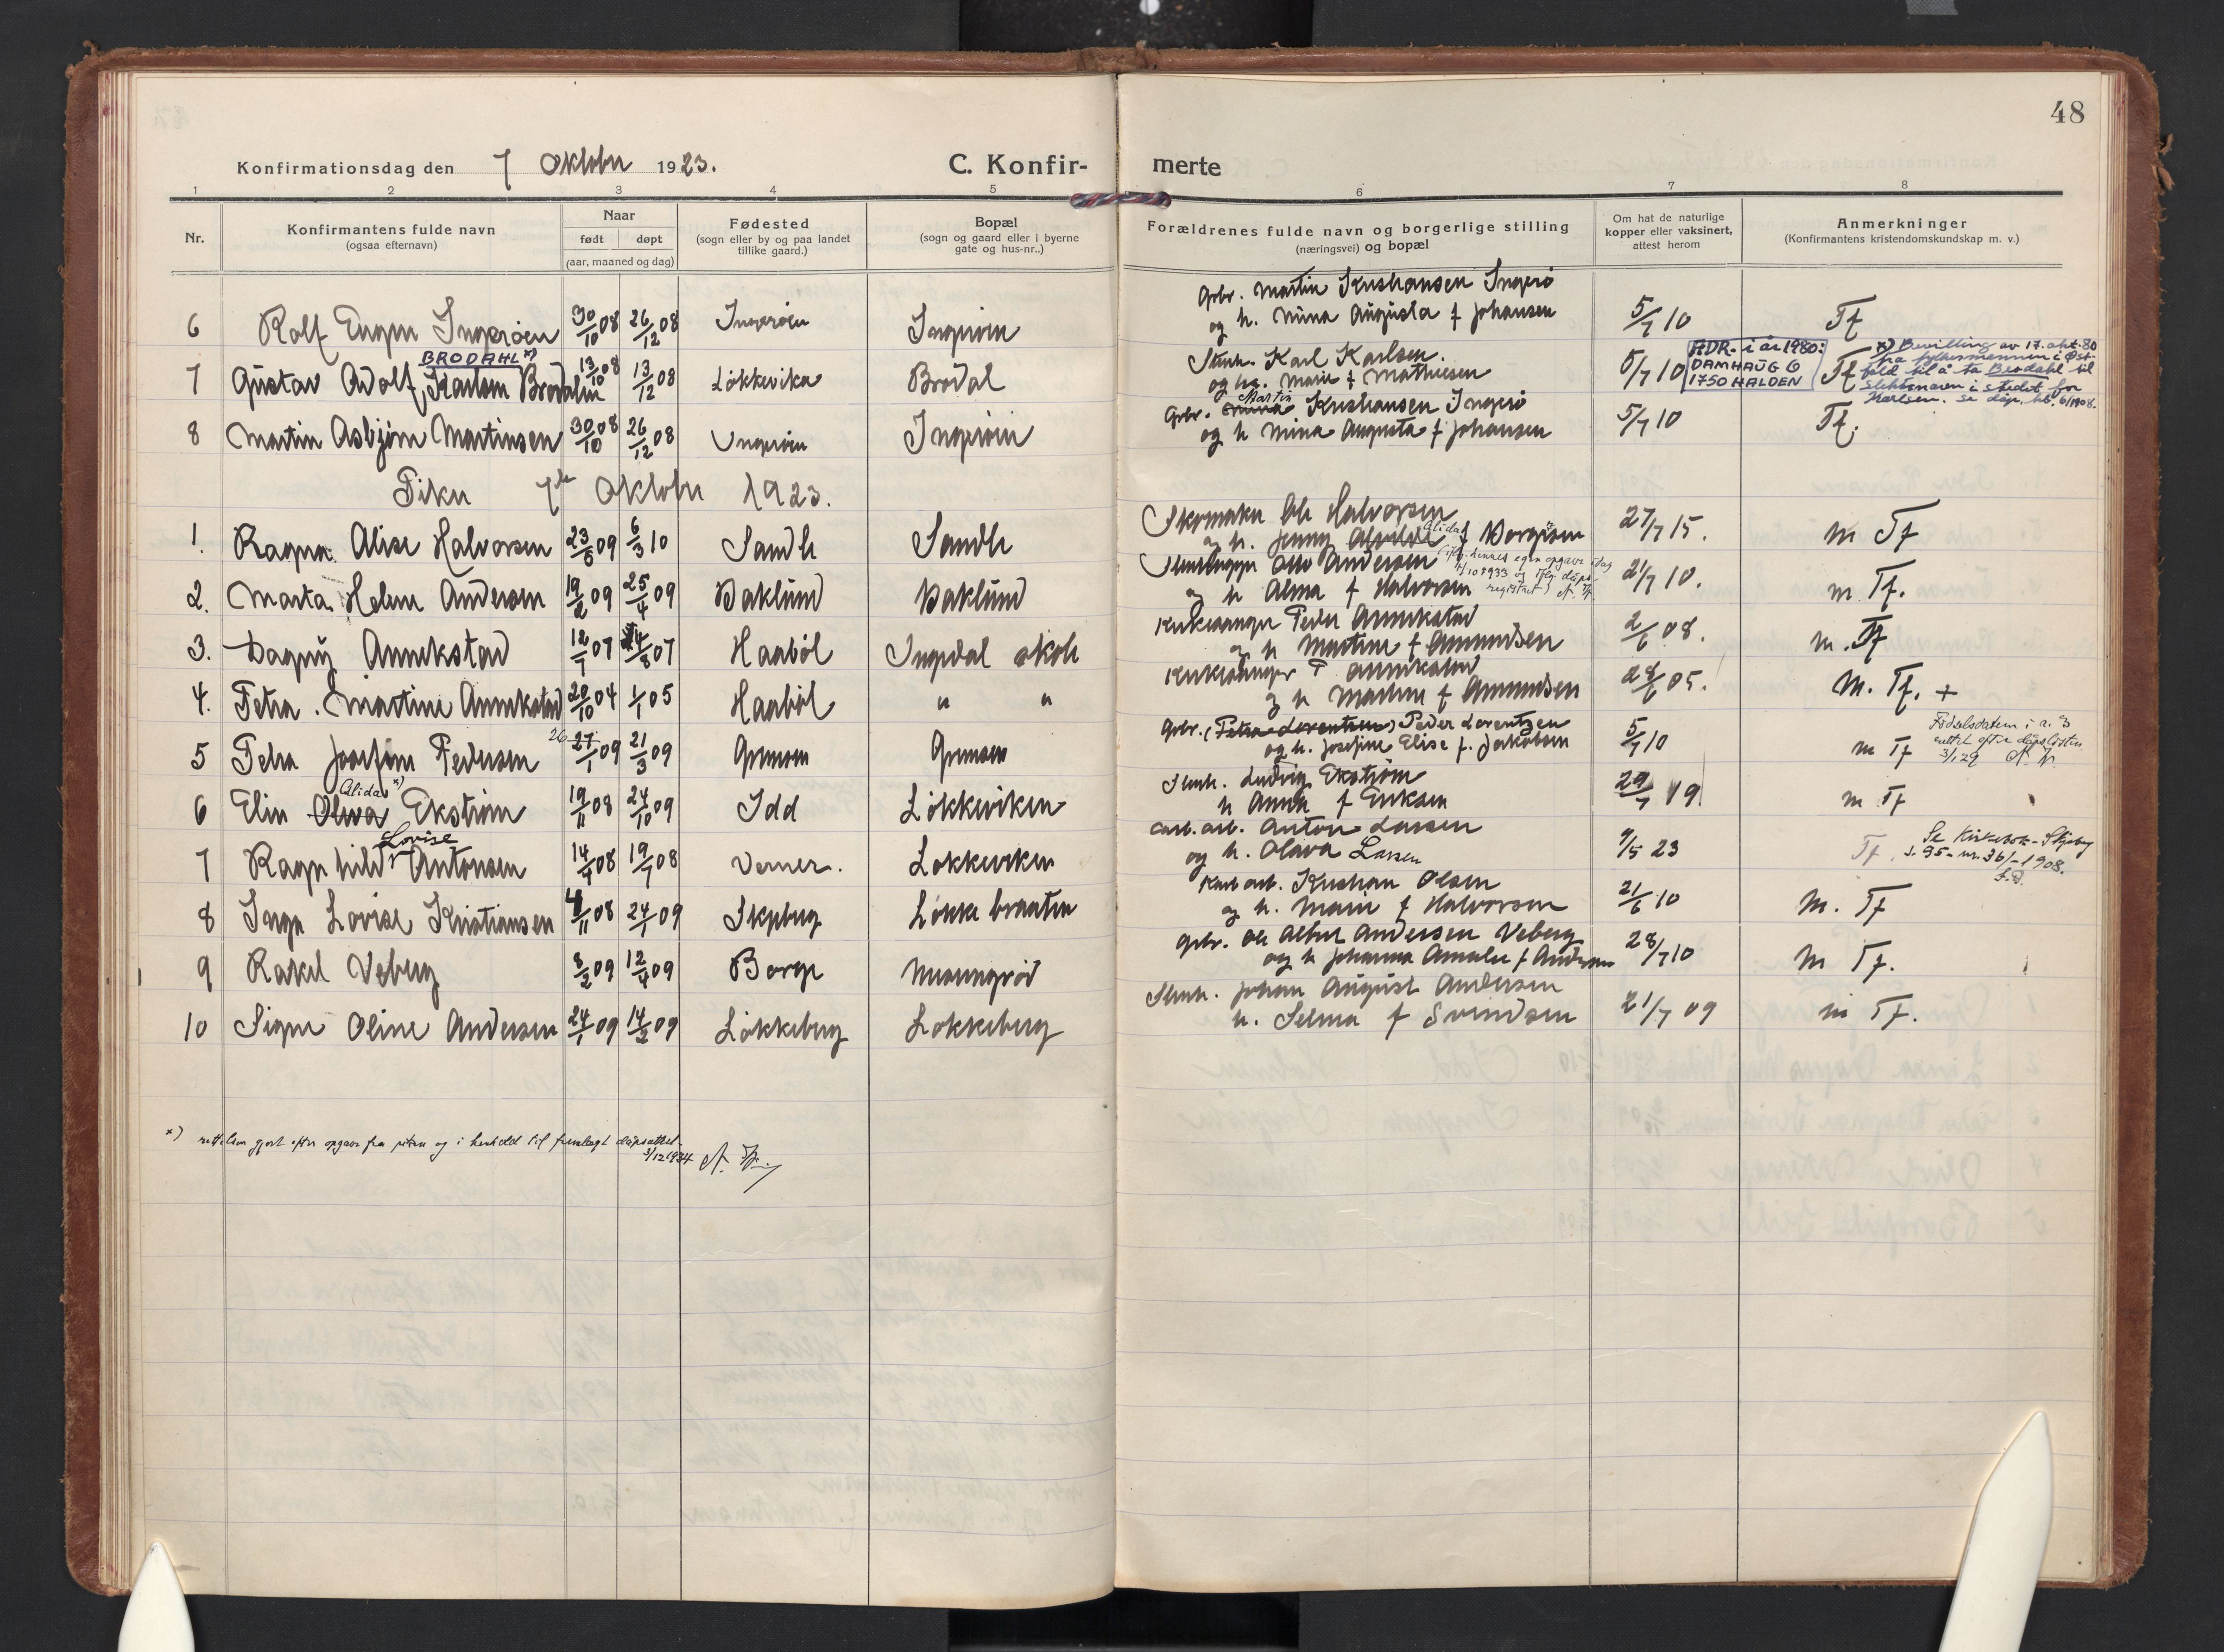 48
Konfirmationsdag den 7 Oktober 1923.
C. Konfir-
merte
1 2 3 4 5 6 7 8
Nr.
Konfirmantens fulde navn
(ogsaa efternavn)
Naar
født døpt
(aar, maaned og dag)
Fødested
(sogn eller by og paa landet
tillike gaard.)
Bopæl
(sogn og gaard eller i byerne
gate og hus-nr..)
Forældrenes fulde navn og borgerlige stilling
(næringsvei) og bopæl
Om hat de naturlige
kopper eller vaksinert,
attest herom
Anmerkninger
(Konfirmantens kristendomskundskap m. v.)
6 Rolf Eugen Ingerøen 30/10 08 26/12 08 Ingerøen Ingerøen Gbr. Martin Kristiansen Ingerø
og h. Mina Augusta f Johansen 5/7 10 Tf
BRODAHL x)
7 Gustav Adolf Karlsen Brodalen 13/10 08 13/12 08 Løkkevika Brodal Stenh. Karl Karlsen.
og h. Marie f Mathiesen 5/7 10 Tf
ADR. i år 1980:
DAMHAUG 6
1750 HALDEN
x) Bevilling av 17. okt. 80
fra fylkesmannen i Øst-
fold til å ta Brodahl til
slektsnavn i stedet for
Karlsen. se dåp. nr. 6/1908.
8 Martin Asbjørn Martinsen 30/10 08 26/12 08 Ingerøen Ingerøen Gbr. Mina Martin Kristiansen Ingerø
og h Mina Augusta f Johansen 5/7 10 Tf.
Piker 7de Oktober 1923.
1. Ragna Alise Halvorsen 23/5 09 6/3 10 Sandle Sandle Skomaker Ole Halvorsen
og h. Jenny Alida f Borgesen 27/7 15. m Tf
(iflg. hennes egen opgave idag
1933 og iflg. dåps-
registret)
2. Marta Helene Andersen 19/2 09 25/4 09 Baklund Baklund Otto Andersen
og h Alma f Halvorsen 21/7 10. m Tf.
3. Dagny Annekstad 12/7 07 4/8 07 Haabøl Ingedal skole Kirkesanger Peder Annekstad
og h Martine f Amundsen 2/6 08. m. Tf
4. Petra Martine Annekstad 20/10 04 1/1 05 Haabøl " " Kirkesanger P Annekstad
og h Martine f Amundsen 28/6 05. M. Tf. +
5 Petra Josefine Pedersen 26 27/1 09 21/3 09 Grimsøen Grimsøen Gbr. (Petra Lorentzen) Peder Lorentzen
og h. Josefine Elise f. Jakobsen 5/7 10 m Tf
Fødselsdatum i r. 3
rettet efter dåpslisten
3/1 29
6 Elin Oliva Alida x) Ekstrøm 19/11 08 24/10 09 Idd Løkkeviken Stenh. Ludvig Ekstrøm
h Anna f Eriksen 29/7 19 m Tf
7 Ragnhild Lovise Antonsen 14/4 08 19/7 08 Verner. Løkkeviken arb. Anton Larsen
og h. Olava Larsen 9/5 23 Tf.
Se Kirkebok - Skjeberg
s. 95 - nr. 36/-1908.
8 Inga Lovise Kristiansen 4/11 08 24/1 09 Skjeberg Løkke braaten arb. Kristian Olsen
og h. Marie f Halvorsen 21/6 10 M. Tf
9 Rakel Veberg 3/2 09 12/4 09 Borge Gbr. Ole Albert Andersen Veberg
og h Johanna Amalie f Andersen 28/7 10 m Tf.
10 Signe Oline Andersen 24/1 09 14/2 09 Løkkeberg Løkkeberg Stenh. Johan August Andersen
h. Selma f Svendsen 21/7 09 m Tf.
x) rettelsen gjort efter opgave fra piken og i henhold til fremlagt dåpsattest.
3/12 1934